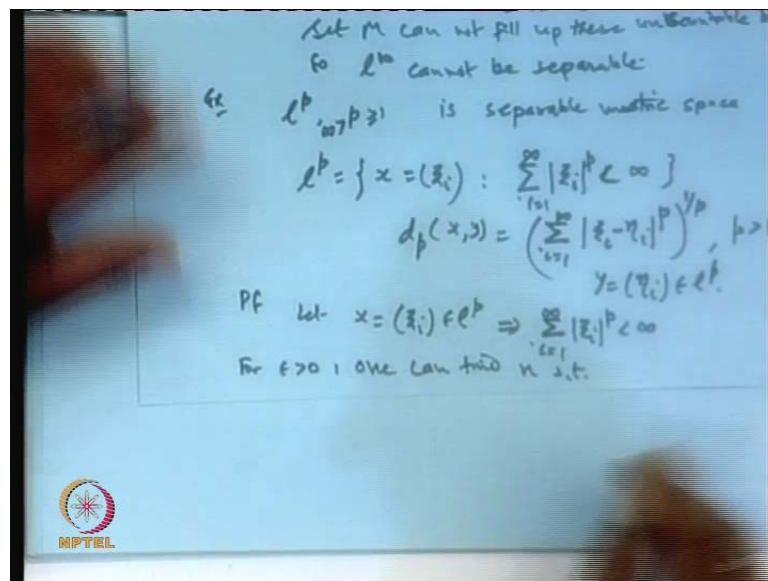 Set M can not fill up these uncountable
So l^∞ cannot be separable.
Ex l^p, ∞>p≥1 is separable metric space
l^p = { x = (ξ_i) : ∑_{i=1}^∞ |ξ_i|^p < ∞ }
d_p(x,y) = (∑_{i=1}^∞ |ξ_i - η_i|^p)^{1/p}, p>
y = (η_i) ∈ l^p.
Pf Let x = (ξ_i) ∈ l^p ⇒ ∑_{i=1}^∞ |ξ_i|^p < ∞
For ε>0, one can find n s.t.
NPTEL